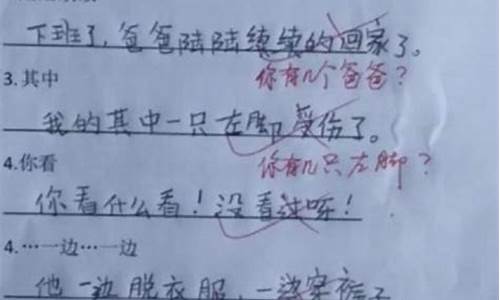 下班了,爸爸陆陆续续的回家了。
你有几个爸爸?
3.其中
我的其中一只左脚受伤了。
你有几只左脚?
4.你看
你看什么看!没看过呀!
4.…一边…一边
他一边脱衣服,一边穿裤子